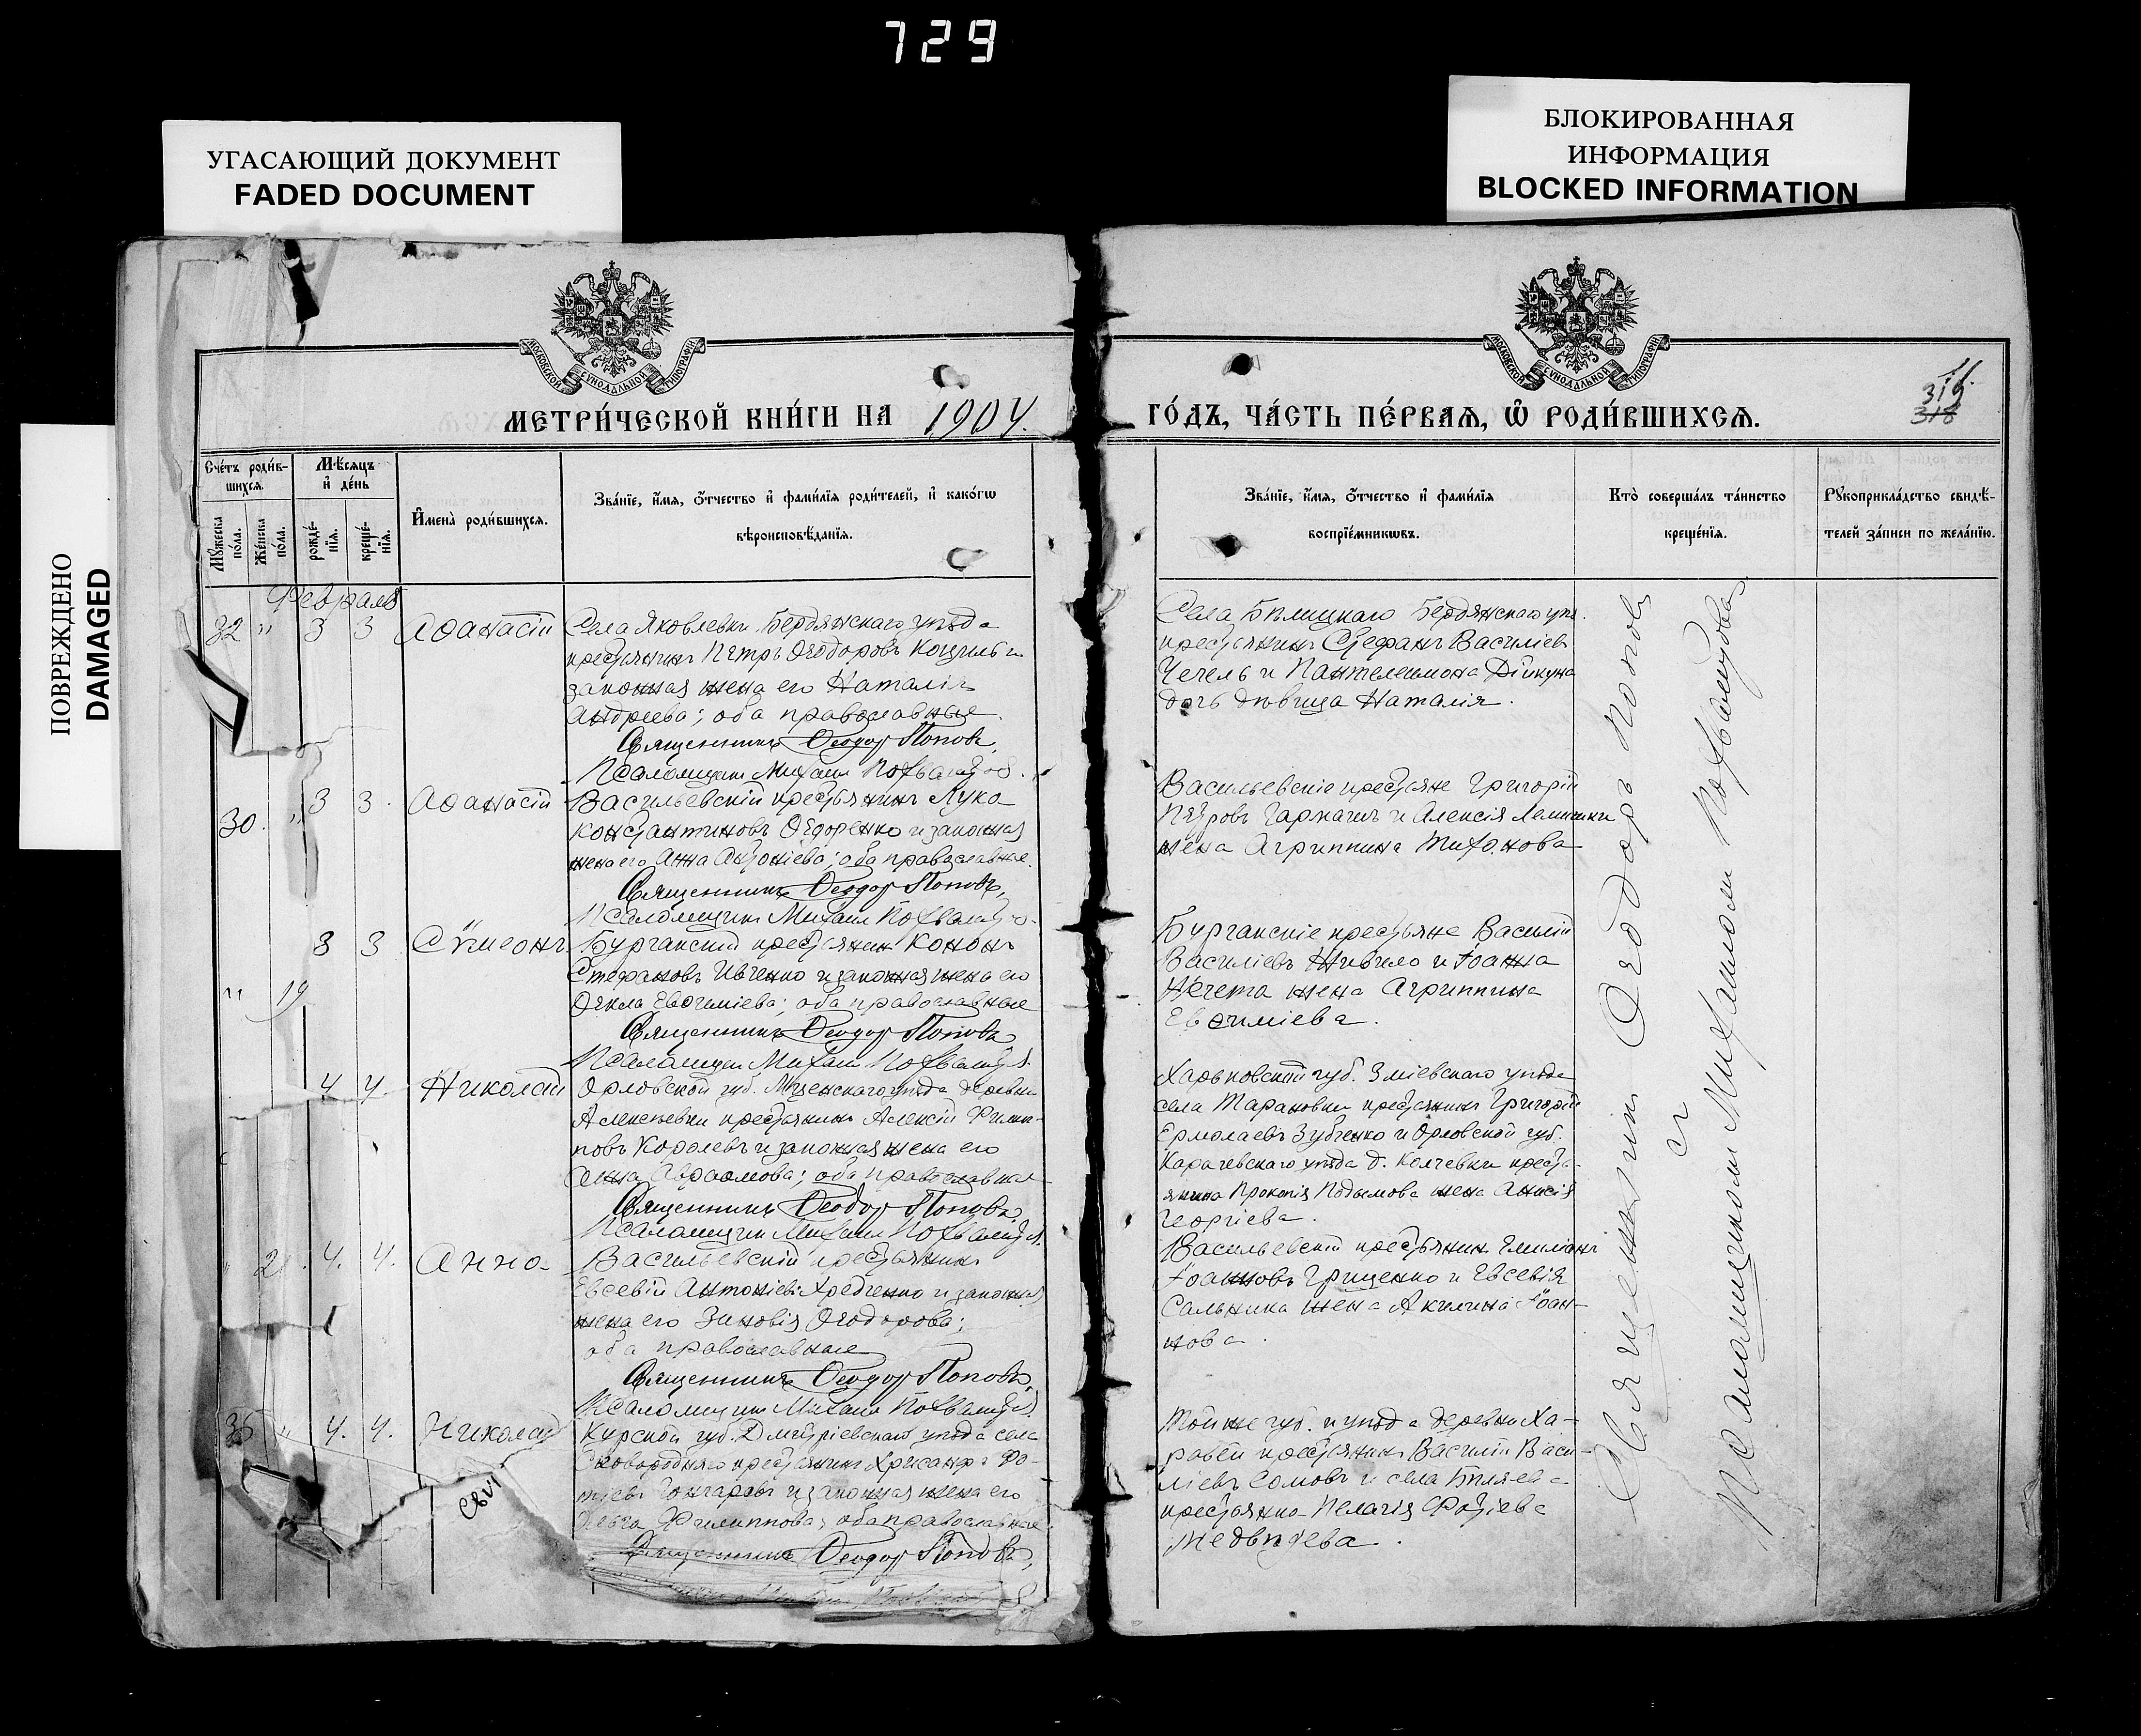 729
УГАСАЮЩИЙ ДОКУМЕНТ
FADED DOCUMENT
БЛОКИРОВАННАЯ
ИНФОРМАЦИЯ
BLOCKED INFORMATION
ПОВРЕЖДЕНО
DAMAGED
МОСКОВСКОЙ СѴНОДАЛЬНОЙ ТИПОГРАФІИ
МОСКОВСКОЙ СѴНОДАЛЬНОЙ ТИПОГРАФІИ
МЕТРИ́ЧЕСКОЙ КНИ́ГИ НА 1904.
ГО́ДЪ, ЧА́СТЬ ПЕ́РВАѦ, Ѡ҆ РОДИ́ВШИХСѦ.
319
318
Сче́тъ роди́в-
шихсѧ.
Мѣ́сѧцъ
и҆ де́нь
Мꙋ́жеска
по́ла.
Же́нска
по́ла.
рожде́-
нїѧ.
креще́-
нїѧ.
И҆мена̀ роди́вшихсѧ.
Зва́нїе, и҆́мѧ, ѻ҆́тчество и҆ фами́лїѧ роди́телей, и҆ како́гѡ
вѣроисповѣ́данїѧ.
Зва́нїе, и҆́мѧ, ѻ҆́тчество и҆ фами́лїѧ
воспрїе́мникѡвъ.
Кто̀ соверша́лъ та́инство
креще́нїѧ.
Рꙋкоприкла́дство свидѣ́-
телей за́писи по жела́нїю.
Февраль
32 " 3 3 Аѳанасій
Села Яковлевки Бердянскаго уѣзда
крестьянинъ Петръ Ѳеодоровъ и
законная жена его Наталія
Андреева; оба православные.
Священникъ Ѳеодор Поповъ,
Псаломщик Михаил
Села Бѣлицкаго Бердянскаго уѣз.
крестьянинъ Стефанъ Василіев
Чечель и Пантелеимона Дійкуна
дочь дѣвица Наталія.
30. " 3 3. Аѳанасій
Васильевскій крестьянинъ Лука
Константиновъ Ѳедоренко и законная
жена его Анна Антоніева; оба православные.
Священникъ Ѳеодор Поповъ,
Псаломщик Михаил
Васильевскіе крестьяне Григорій
Петровъ и Алексія
жена Агриппина Тихонова
" 19 3 3 Сѵмеонъ
Бурчакскій крестьянин Кононъ
Стефановъ Ивченко и законная жена его
Ѳекла Евѳиміева; оба православные
Священникъ Ѳеодор Поповъ
Псаломщик Михаил
Бурчакскіе крестьяне Василій
Василіевъ и Іоанна
Нечета жена Агриппина
Евѳиміева.
4 4. Николай
Орловской губ. Мценскаго уѣзда деревни
Алексѣевки крестьянинъ Алексій Филип-
повъ Королевъ и законная жена его
Анна Авраамова; оба православные
Священникъ Ѳеодор Поповъ,
Псаломщик Михаил
Харьковской губ. Зміевскаго уѣзда
села Тарановки крестьянинъ Григорій
Ермолаевъ Зубченко и Орловской губ.
Карачевскаго уѣзда д. Колчевки кресть-
янина Прокопія Подымова жена Анисія
Георгіева.
21. 4. 4. Анна
Васильевскій крестьянинъ
Евсевій Антоніевъ и законная
жена его Зиновія Ѳеодорова;
оба православные
Священникъ Ѳеодор Поповъ,
Псаломщик Михаил
Васильевскій крестьянин Емиліанъ
Іоанновъ Грищенко и Евсевія
Сальника жена Акилина Іоан-
нова.
35 " 4. 4. Николай
Курской губ. Дмитріевскаго уѣзда села
крестьянинъ Хрисанфъ Фо-
тіевъ Гончаровъ и законная жена его
Ольга Филиппова; оба православные
Священникъ Ѳеодор Поповъ,
Той же губ. и уѣзда деревни Ха-
крестьянин Василій Васи-
ліевъ Сомовъ и села Бѣляева
крестьянка Пелагія Фотіева
Медвѣдева.
Священникъ Ѳеодоръ Поповъ
съ
Псаломщикомъ Михаиломъ